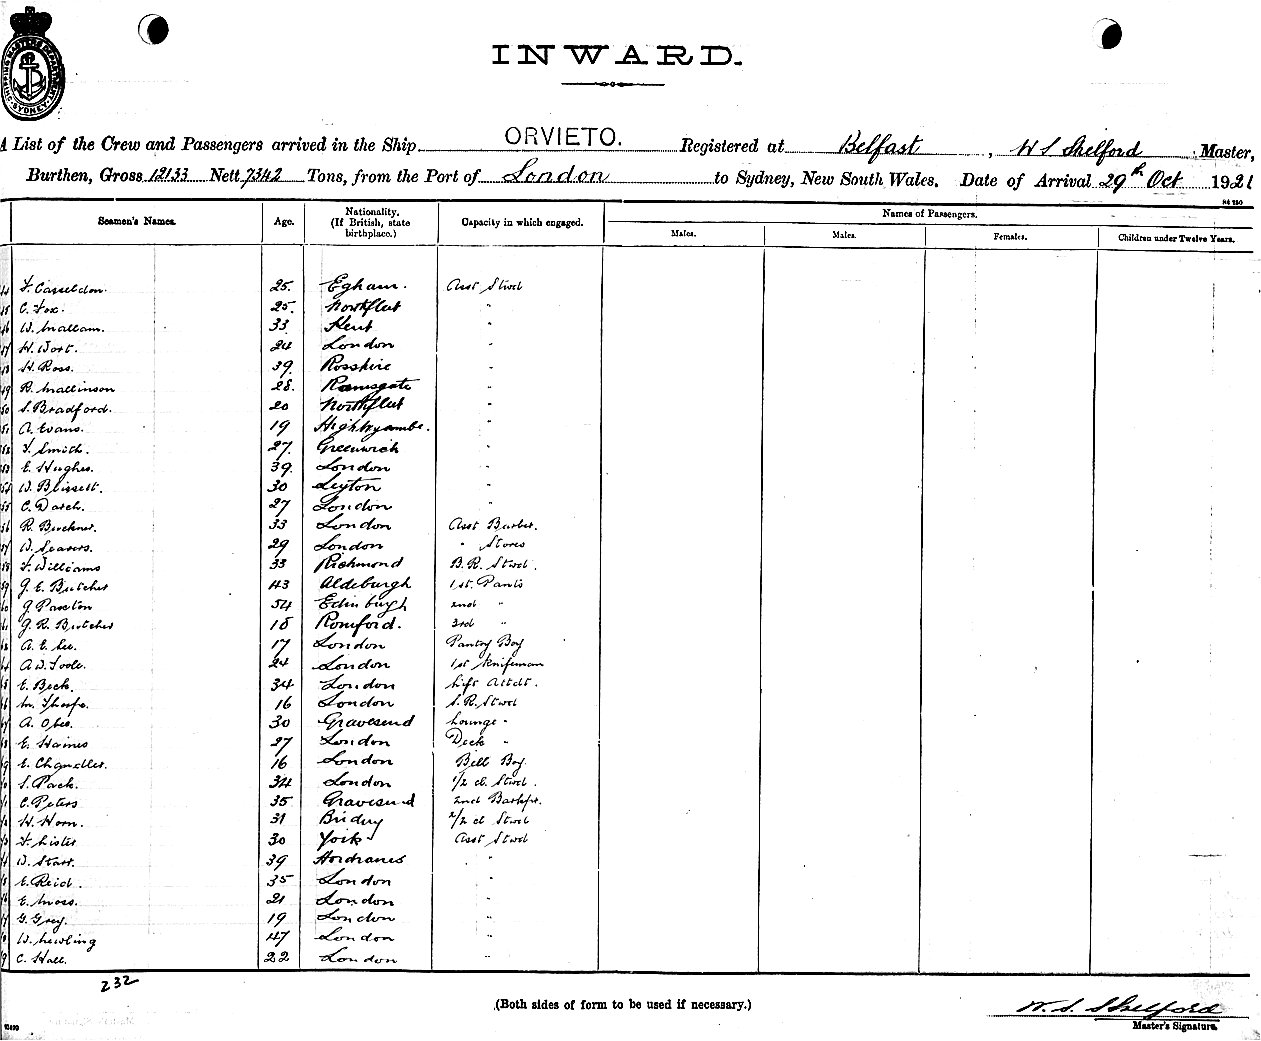 INWARD.
A List of the Crew and Passengers arrived in the Ship ORVIETO. Registered at Belfast, W S Shelford, Master,
Burthen, Gross 12133 Nett 7342 Tons, from the Port of London to Sydney, New South Wales. Date of Arrival 29th Oct 1921
Seamen's Names. Age. Nationality. (If British, state birthplace.) Capacity in which engaged. Names of Passengers.
Males. Males. Females. Children under Twelve Years.
25. Egham. Asst Stwd
C. Fox. 25. Northfleet "
W. Mallam. 33 Kent "
H. Wort. 24 London "
H. Ross. 39. Rosshire "
R. Mallinson 28. Ramsgate "
S. Bradford. 20 Northfleet "
A. Evans. 19 High Wycombe. "
F. Smith. 27. Greenwich "
E. Hughes. 39. London "
W. Blissett. 30 Leyton "
C. Darch. 27 London "
R. Buckner. 33 London Asst Barber.
W. 29 London " Stores
F. Williams 33 Richmond B.R. Stwd.
G. E. Butcher 43 Aldeburgh 1st. Pants
G. Paxton 54 Edinburgh 2nd "
G. R. Butcher 18 Romford. 3rd "
A. E. Lee. 17 London Pantry Boy
A W. Toole. 24 London 1st Knifeman
E. Beck. 34 London Lift Attdt.
M. Thorpe. 16 London S. R. Stwd
A. 30 Gravesend Lounge "
E. Haines 27 London Deck "
E. Chandler. 16 London Bell Boy.
S. Pack. 34 London 1/2 cl. Stwd.
C. Peters 35 Gravesend 2nd
H. Horn. 31 2/2 cl Stwd
F. Lister 30 York Asst Stwd
W. Starr. 39 "
E. Reid. 35 London "
E. Moss. 21 London "
G. Grey. 19 London "
W. Newling 47 London "
C. Hall. 22 London "
232
(Both sides of form to be used if necessary.)
W. S. Shelford
Master's Signature.